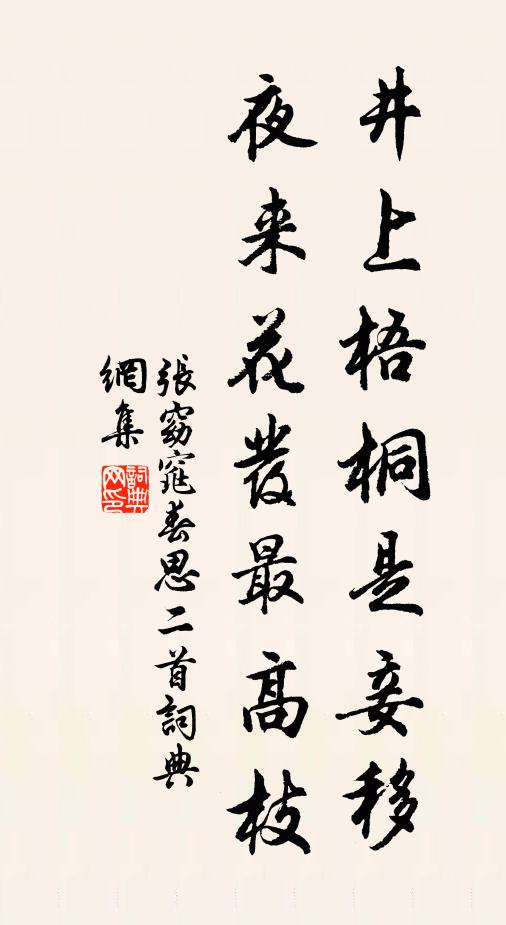 井上梧桐是妾移
夜来花發最高枝
張窈窕春思二首詞典
網集
詞典网印